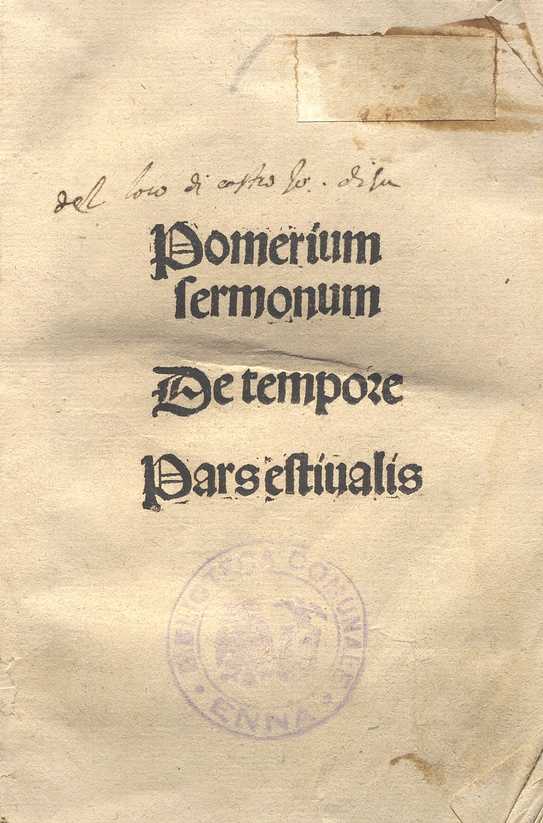 del loco di castro Jo.
Pomerium
sermonum
De tempore
Pars estiualis
BIBLIOTECA COMUNALE
• ENNA •